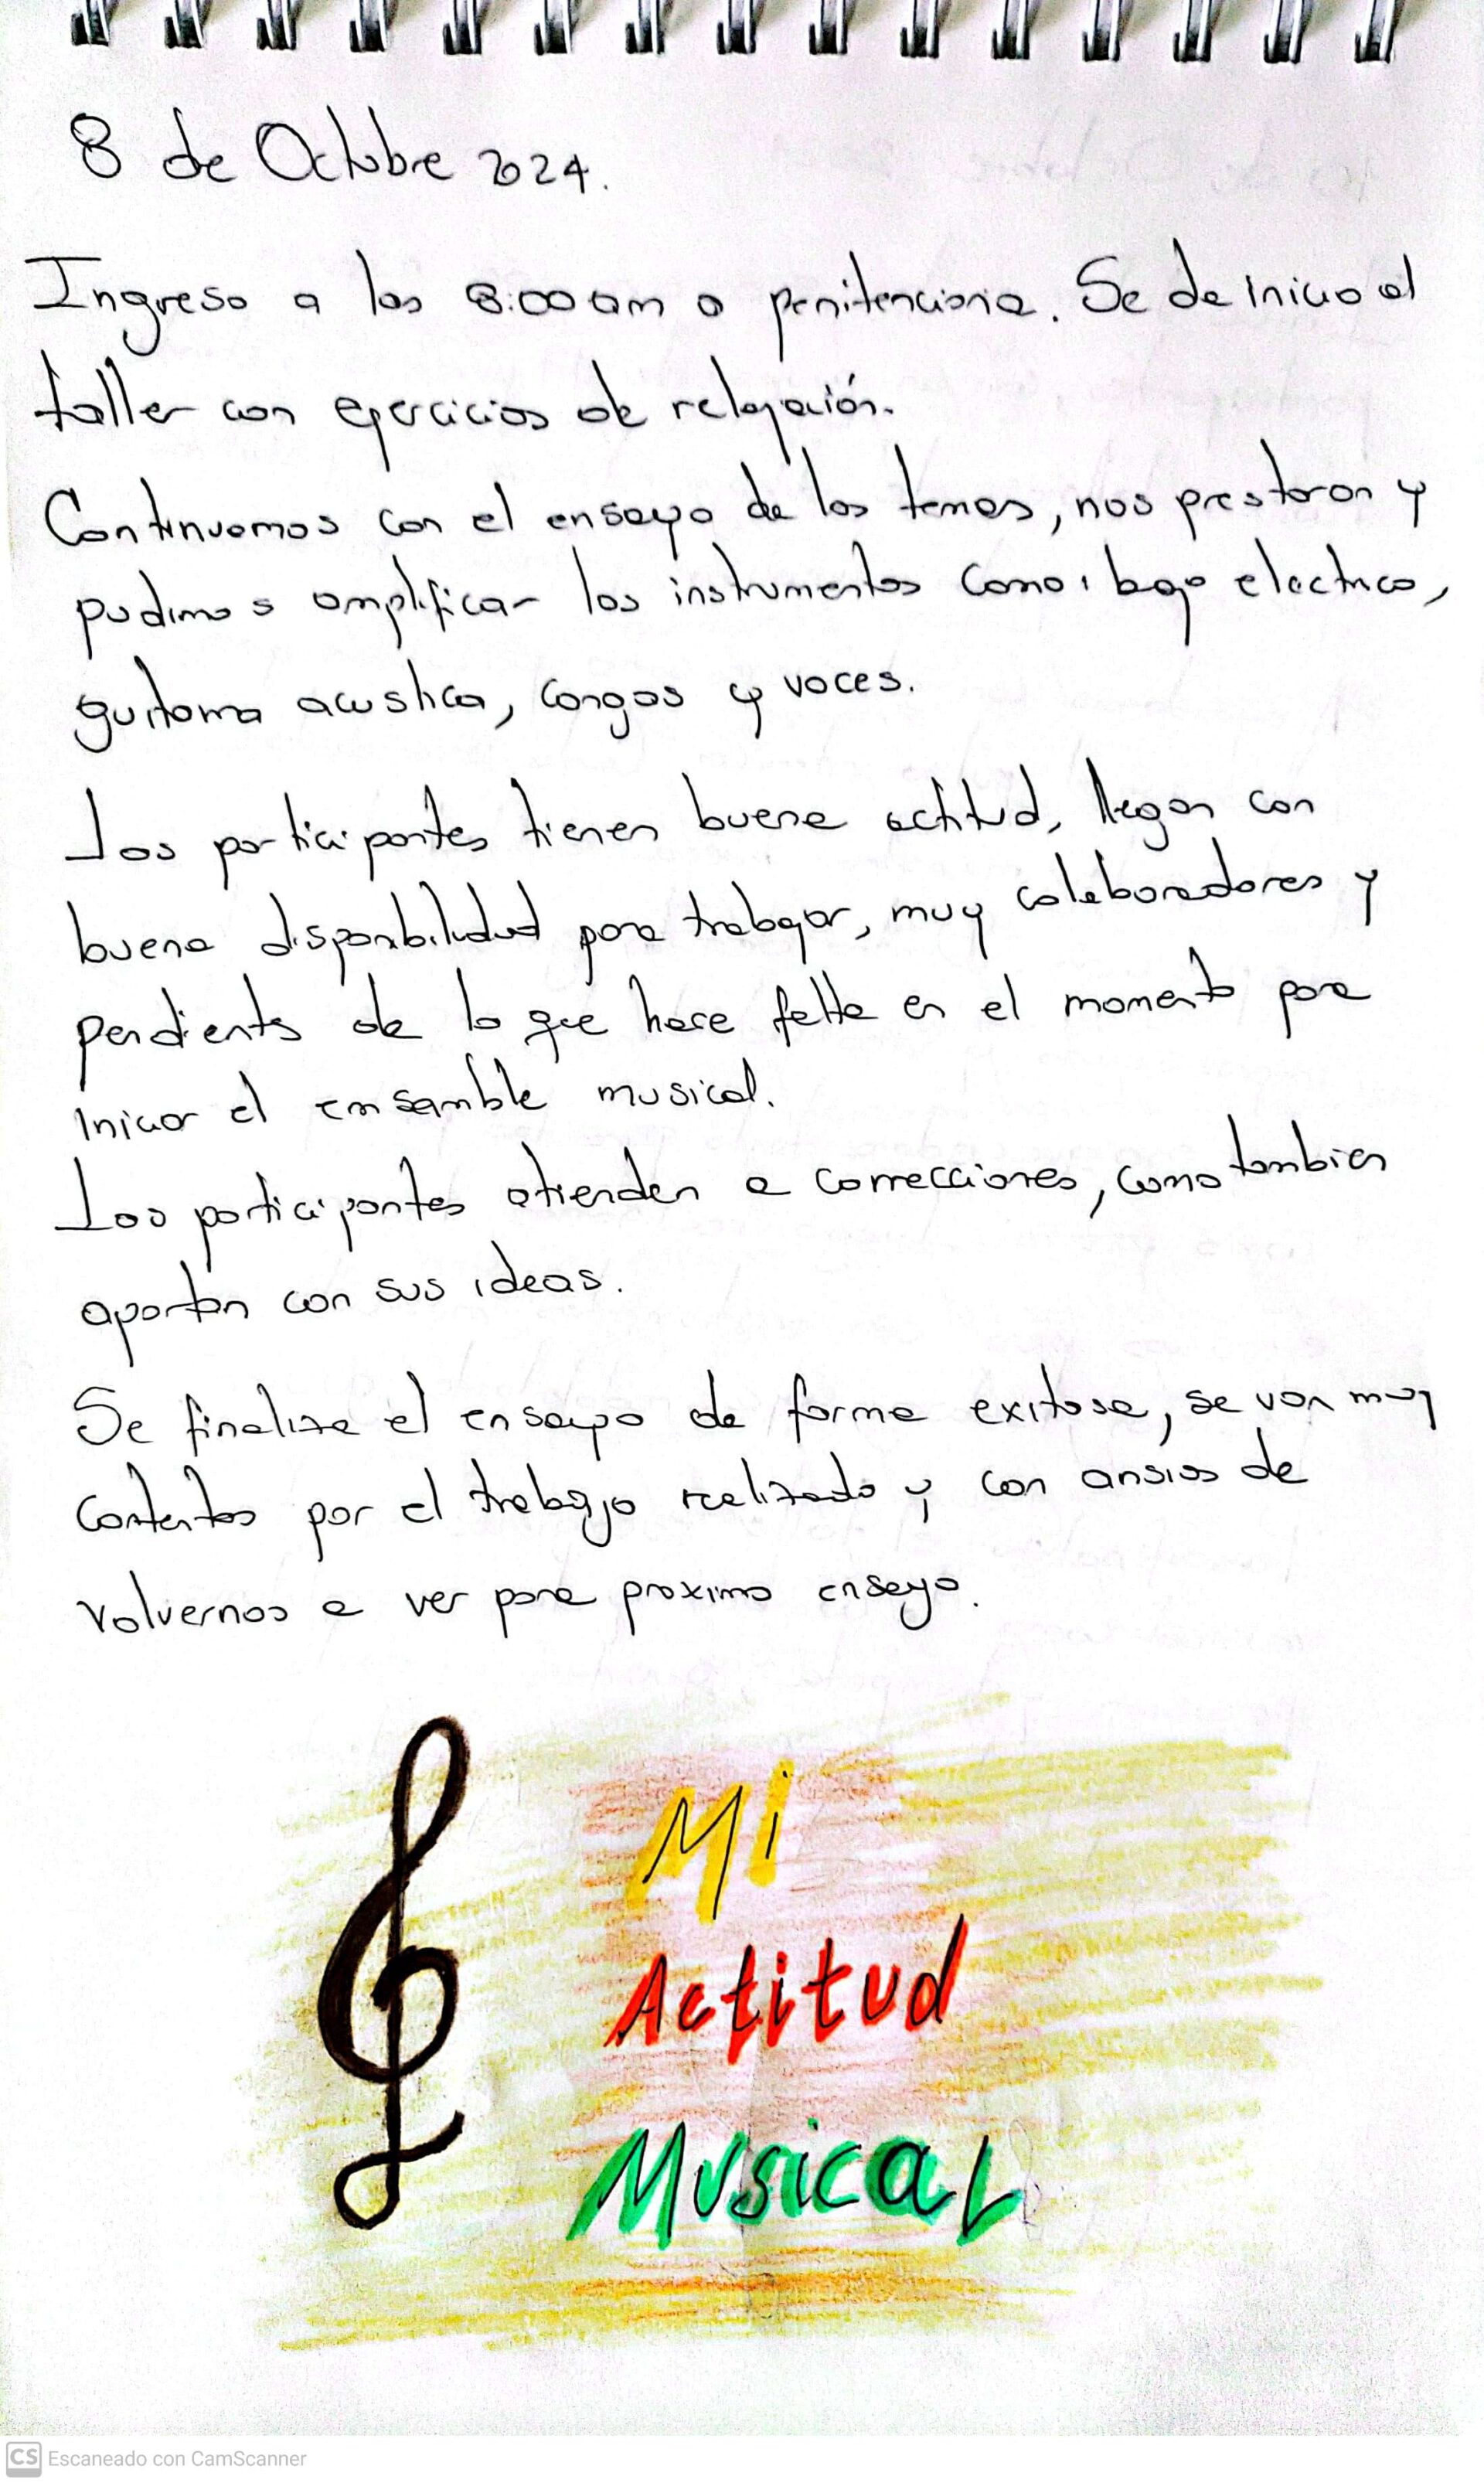 8 de Octubre 2024.
Ingreso a las 8:00 am a penitenciaria. Se da inicio al
taller con ejercicios de relajación.
Continuamos con el ensayo de los temas, nos prestaron y
pudimos amplificar los instrumentos como: bajo electrico,
guitarra acustica, congas y voces.
Los participantes tienen buena actitud, llegan con
buena disponibilidad para trabajar, muy colaboradores y
pendients de lo que hace falta en el momento para
iniciar el ensamble musical.
Los participantes atienden a correcciones, como tambien
aportan con sus ideas.
Se finaliza el ensayo de forma exitosa, se van muy
contentos por el trabajo realizado y con ansias de
volvernos a ver para proximo ensayo.
Mi
Actitud
Musical
CS Escaneado con CamScanner